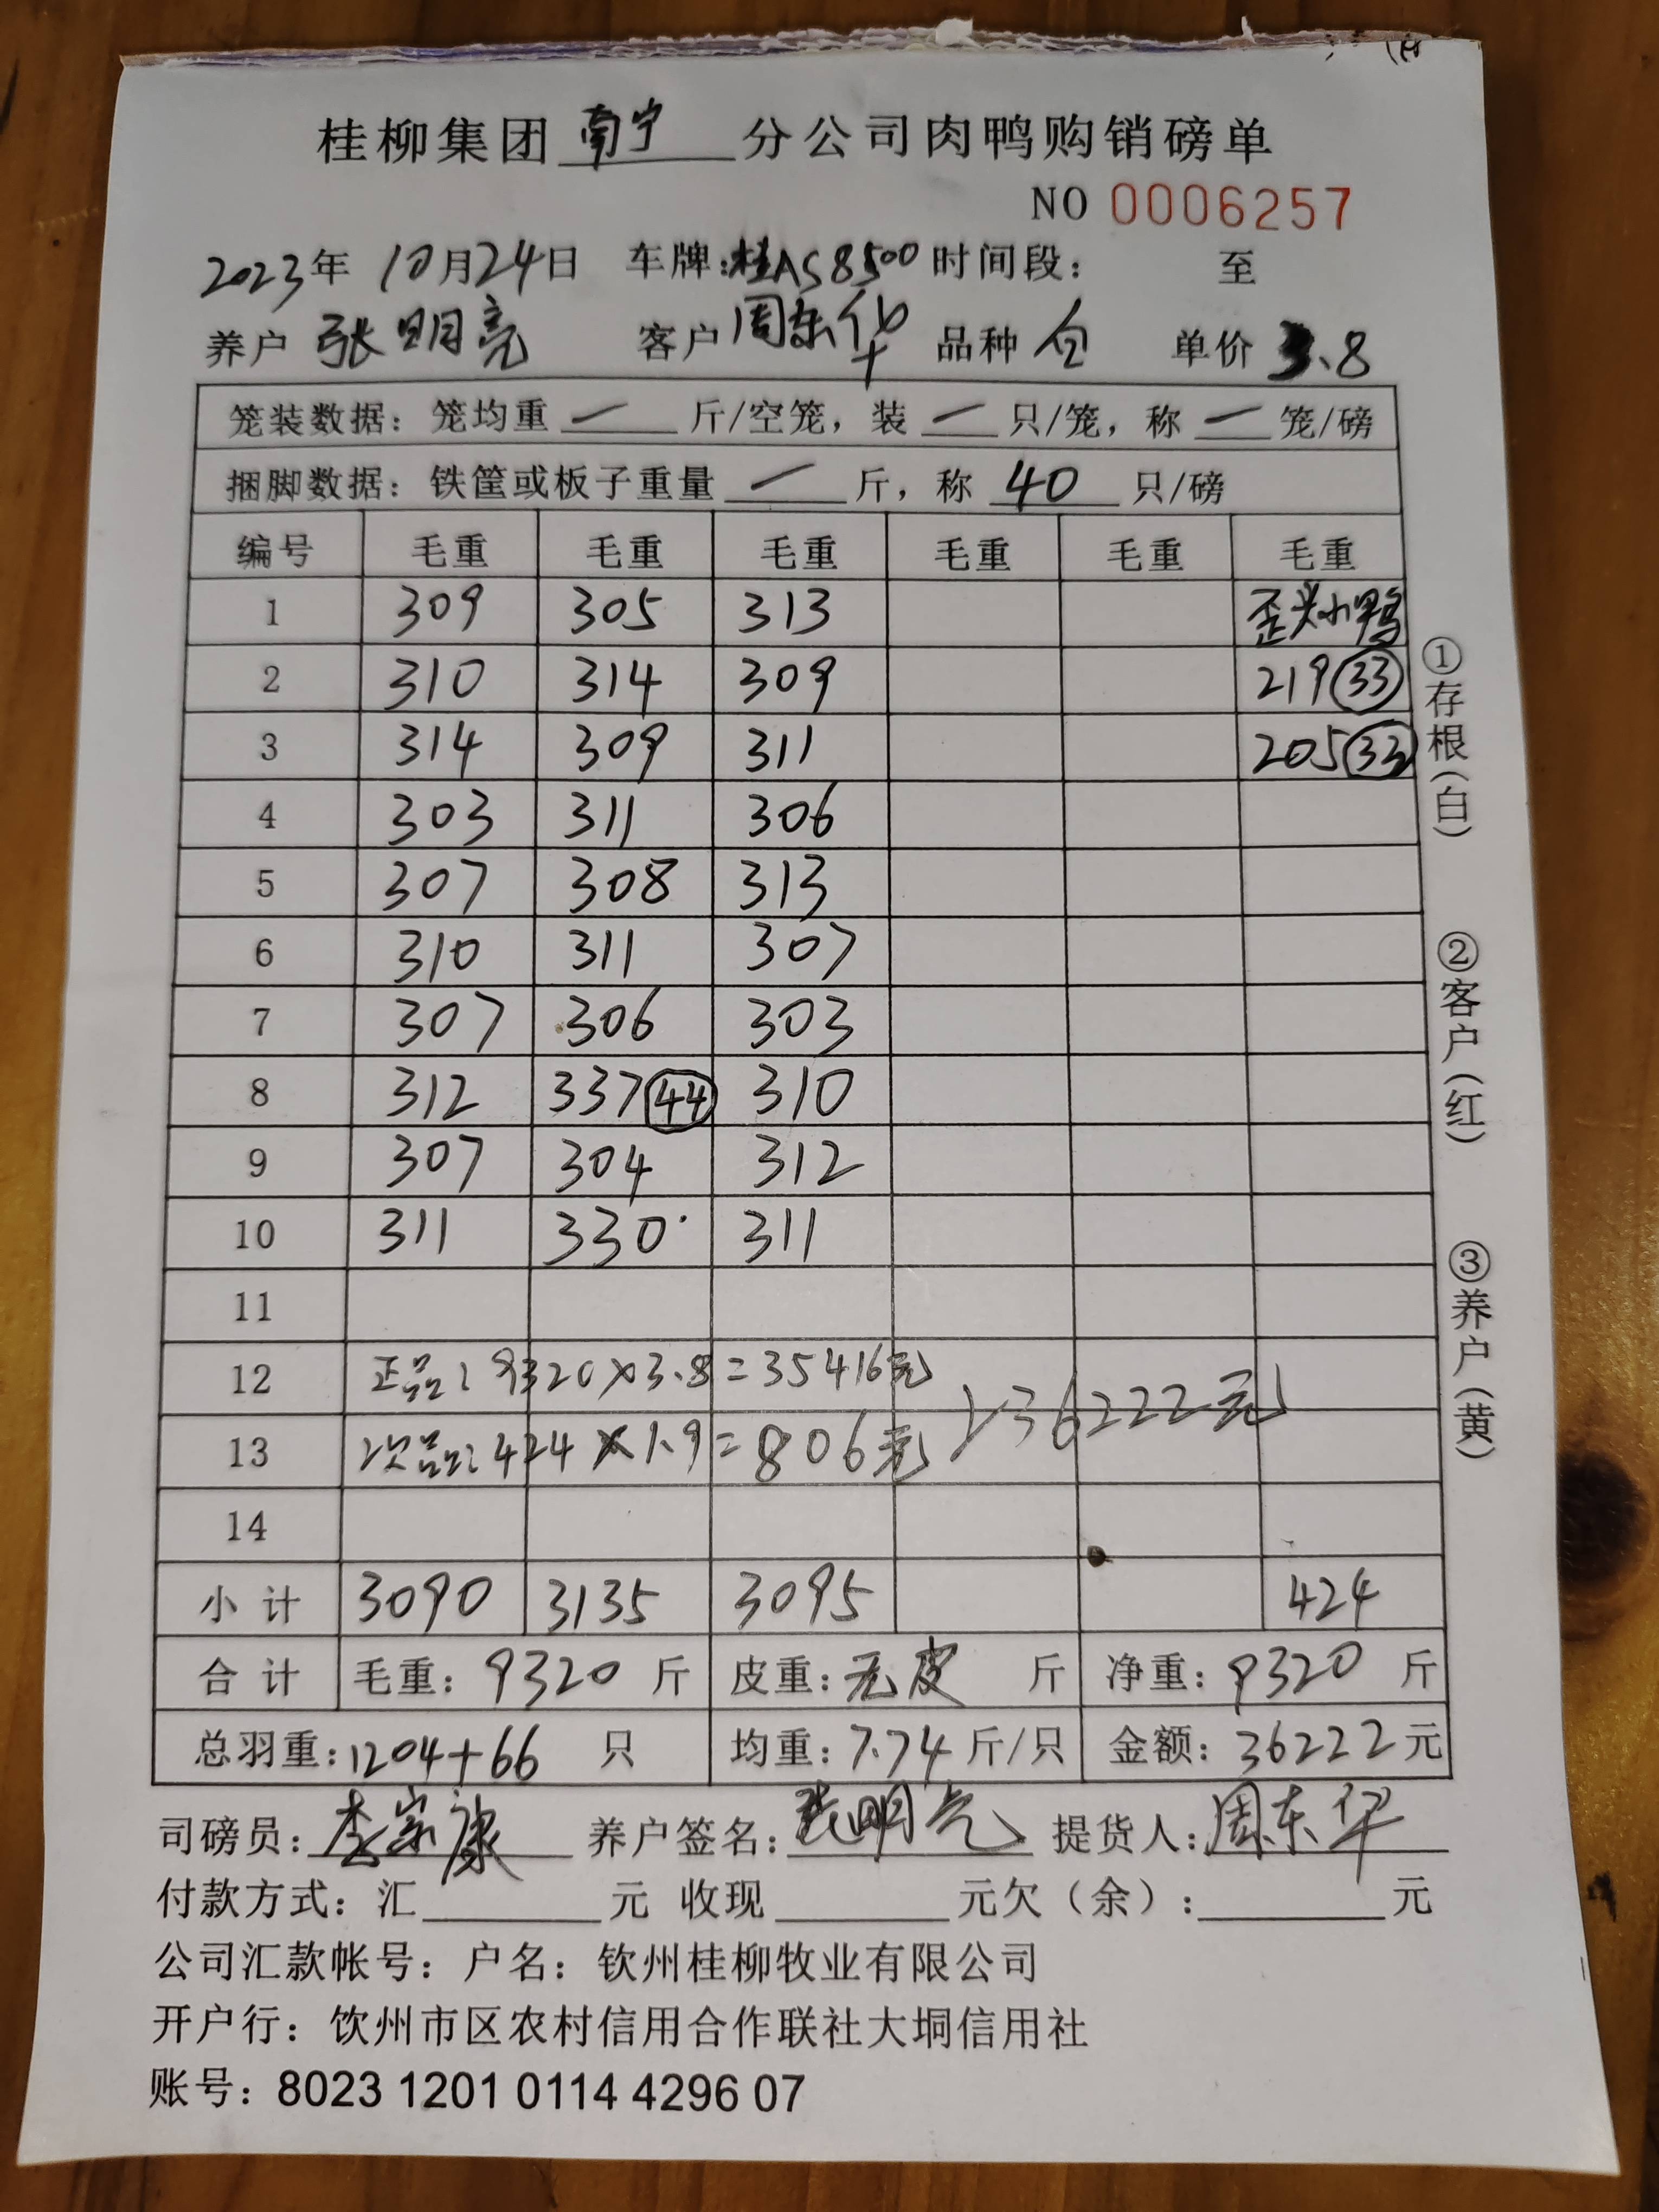 桂柳集团南宁分公司肉鸭购销磅单
NO 0006257
2023年 10月24日 车牌:桂AS8500 时间段: 至
养户 张明亮 客户 周东华 品种 仓 单价 3.8
笼装数据: 笼均重 — 斤/空笼, 装 — 只/笼, 称 — 笼/磅
捆脚数据: 铁筐或板子重量 — 斤, 称 40 只/磅
编号 毛重 毛重 毛重 毛重 毛重 毛重
1 309 305 313 歪头小鸭
2 310 314 309 219 33
3 314 309 311 205 33
4 303 311 306
5 307 308 313
6 310 311 307
7 307 306 303
8 312 337 44 310
9 307 304 312
10 311 330 311
11
12 正品: 9320×3.8=35416元
13 次品: 424×1.9=806元
36222元
14
小计 3090 3135 3095 424
合计 毛重: 9320 斤 皮重: 无皮 斤 净重: 9320 斤
总羽重: 1204+66 只 均重: 7.74 斤/只 金额: 36222 元
司磅员: 李宗康 养户签名: 张明亮 提货人: 周东华
付款方式: 汇 元 收现 元欠(余): 元
公司汇款帐号: 户名: 钦州桂柳牧业有限公司
开户行: 饮州市区农村信用合作联社大垌信用社
账号: 8023 1201 0114 4296 07
①存根(白)
②客户(红)
③养户(黄)